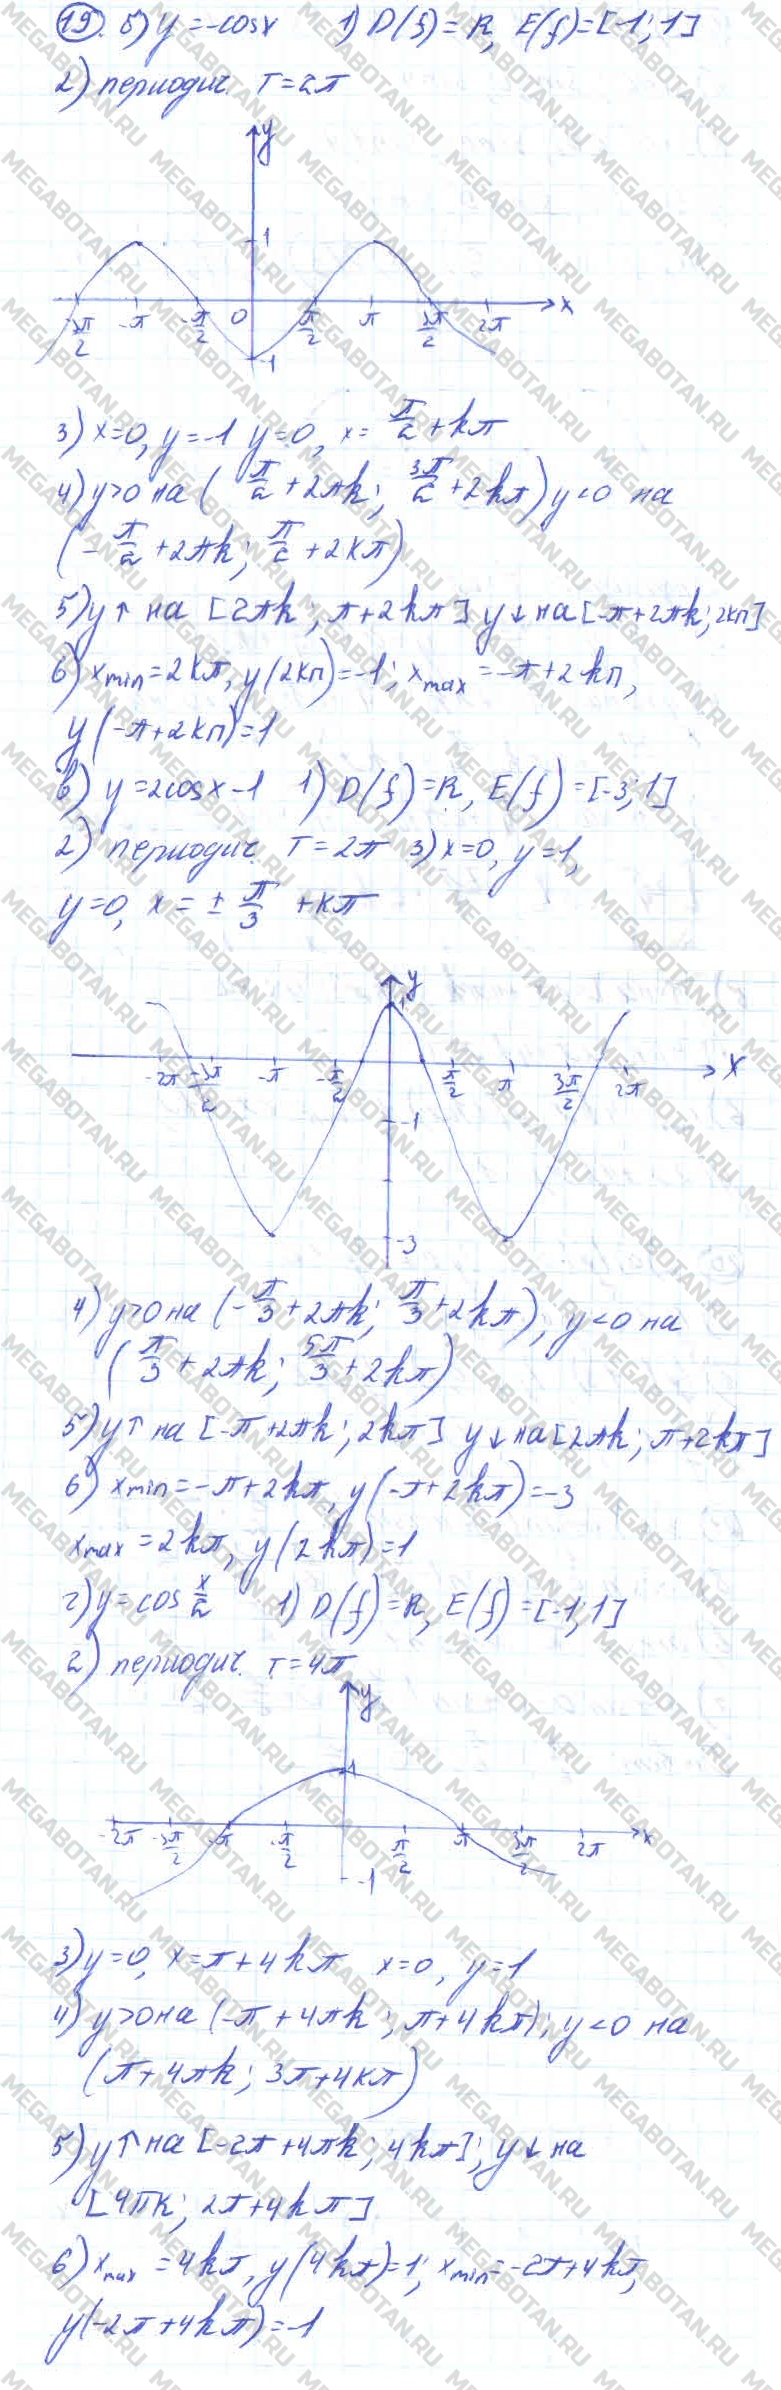 19. б) y = -cosx 1) D(f) = R, E(f) = [-1; 1]
2) периодич. T = 2π
y
1
-3π/2 -π -π/2 0 π/2 π 3π/2 2π x
-1
3) x=0, y=-1 y=0, x= π/2 + kπ
4) y>0 на (π/2 + 2πk; 3π/2 + 2kπ) y<0 на
(-π/2 + 2πk; π/2 + 2kπ)
5) y↑ на [2πk; π+2kπ] y↓ на [-π+2πk; 2kπ]
6) xmin = 2kπ, y(2kπ) = -1; xmax = -π+2kπ,
y(-π+2kπ) = 1
в) y = 2cosx - 1 1) D(f) = R, E(f) = [-3; 1]
2) периодич. T = 2π 3) x=0, y=1,
y=0, x = ± π/3 + kπ
y
1
-2π -3π/2 -π -π/2 π/2 π 3π/2 2π x
-1
-3
4) y>0 на (-π/3 + 2πk; π/3 + 2kπ), y<0 на
(π/3 + 2πk; 5π/3 + 2kπ)
5) y↑ на [-π+2πk; 2kπ] y↓ на [2πk; π+2kπ]
6) xmin = -π+2kπ, y(-π+2kπ) = -3
xmax = 2kπ, y(2kπ) = 1
г) y = cos x/2 1) D(f) = R, E(f) = [-1; 1]
2) периодич. T = 4π
y
1
-2π -3π/2 -π -π/2 π/2 π 3π/2 2π x
-1
3) y=0, x = π+4kπ x=0, y=1
4) y>0 на (-π+4πk; π+4kπ); y<0 на
(π+4πk; 3π+4kπ)
5) y↑ на [-2π+4πk; 4kπ]; y↓ на
[4πk; 2π+4kπ]
6) xmax = 4kπ, y(4kπ) = 1; xmin = -2π+4kπ,
y(-2π+4kπ) = -1
MEGABOTAN.RU